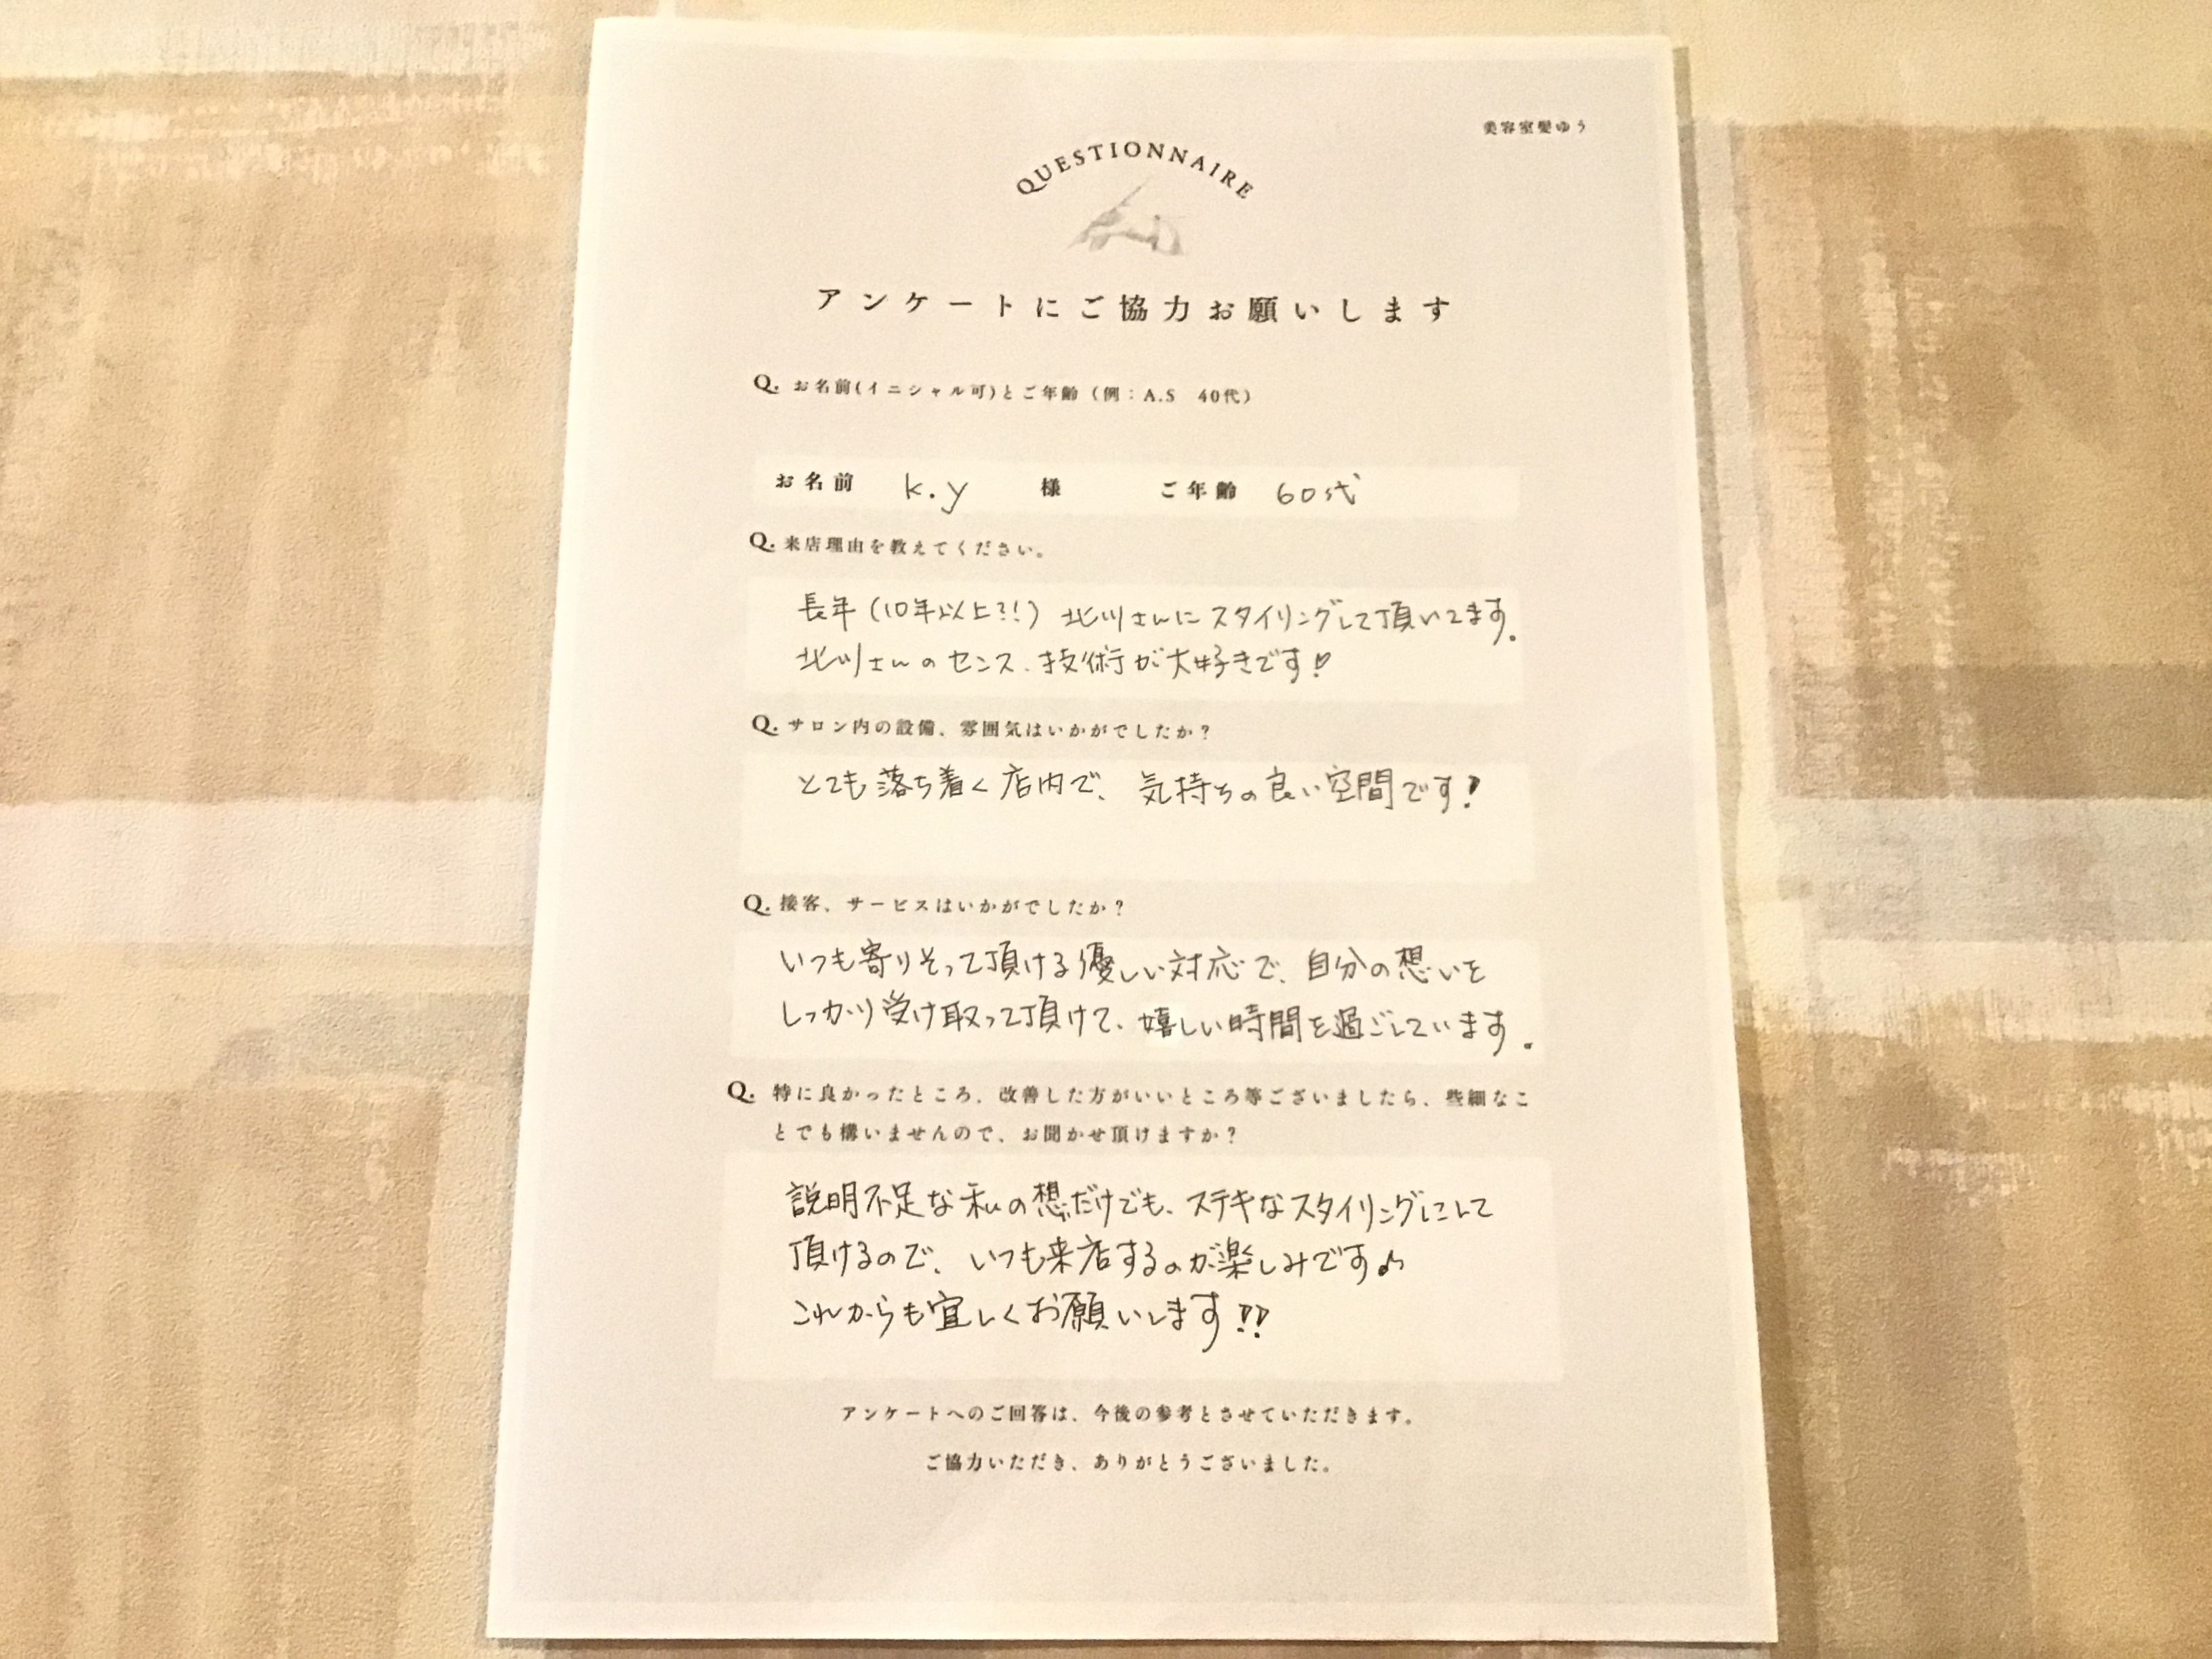 美容室髪ゆう
QUESTIONNAIRE
アンケートにご協力お願いします
Q. お名前(イニシャル可)とご年齢（例：A.S 40代）
お名前 K.y 様 ご年齢 60代
Q. 来店理由を教えてください。
長年（10年以上?!）北川さんにスタイリングして頂いてます。
北川さんのセンス、技術が大好きです!
Q. サロン内の設備、雰囲気はいかがでしたか？
とても落ち着く店内で、気持ちの良い空間です!
Q. 接客、サービスはいかがでしたか？
いつも寄りそって頂ける優しい対応で、自分の想いを
しっかり受け取って頂けて、嬉しい時間を過ごしています。
Q. 特に良かったところ、改善した方がいいところ等ございましたら、些細なこ
とでも構いませんので、お聞かせ頂けますか？
説明不足な私の想いだけでも、ステキなスタイリングにして
頂けるので、いつも来店するのが楽しみです♪
これからも宜しくお願いします!!
アンケートへのご回答は、今後の参考とさせていただきます。
ご協力いただき、ありがとうございました。